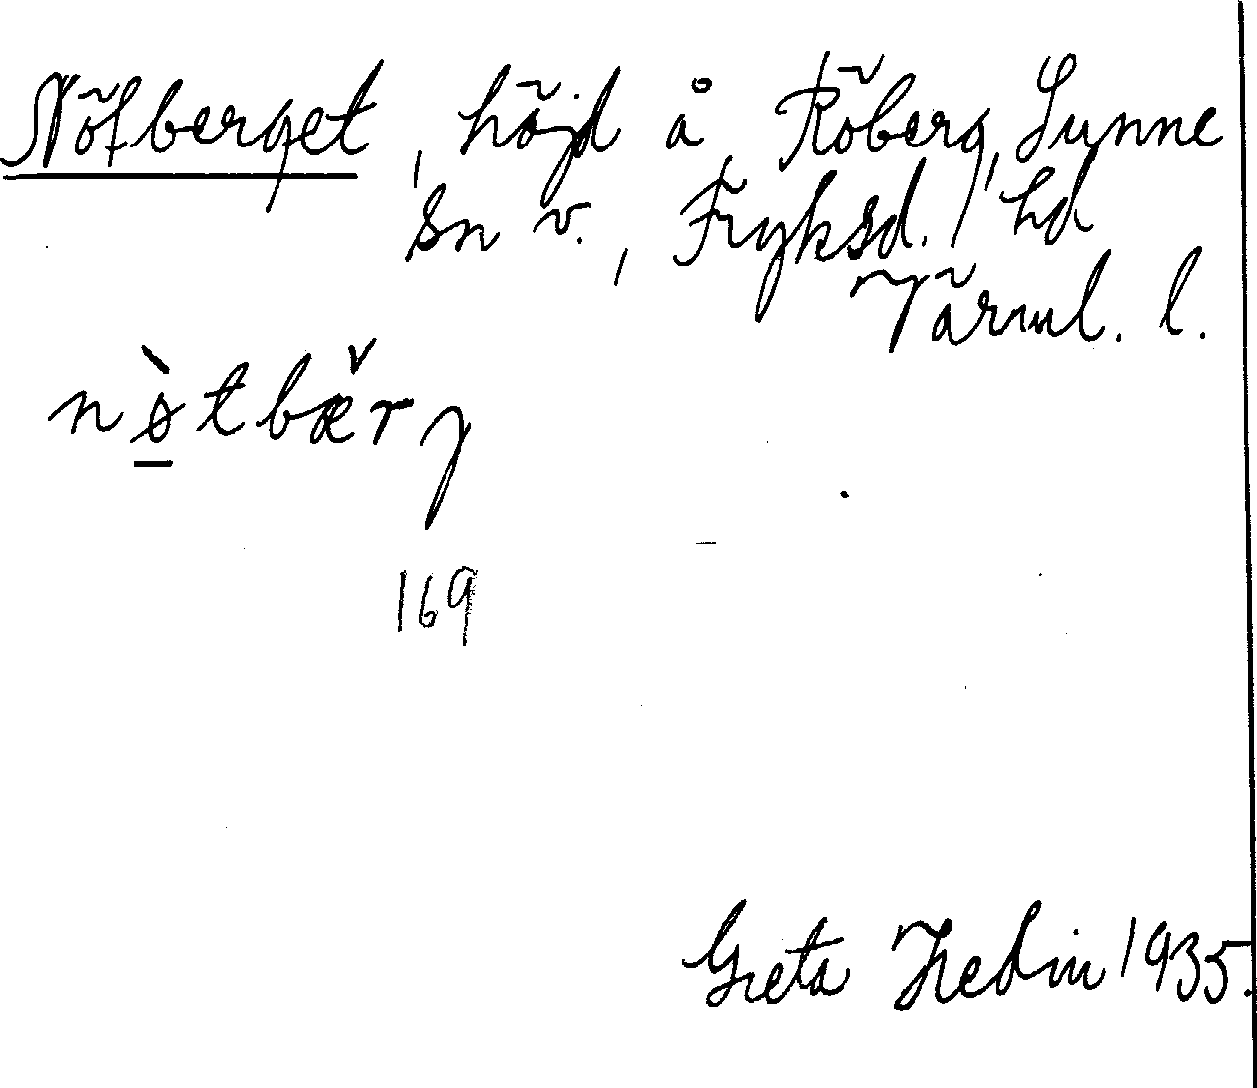 Nötberget, höjd å Röberg, Sunne
sn v., Fryksd. hd
Värml. l.
nø̱̀tbæ̌rj
169
Greta Hedin 1935.